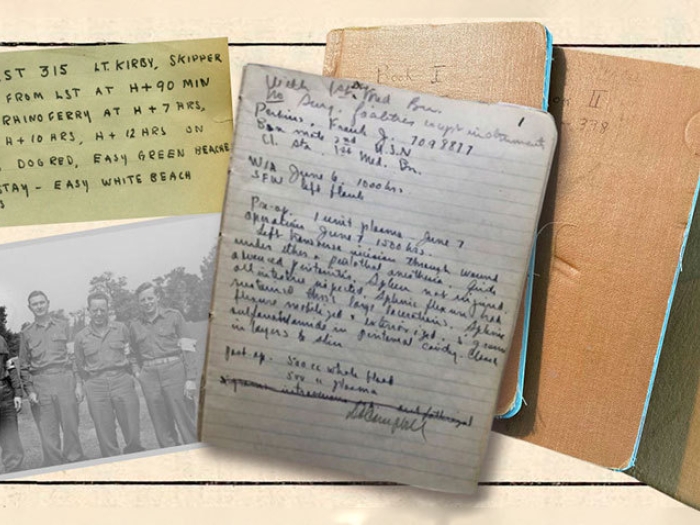 ST 315 LT. KIRBY, SKIPPER
FROM LST AT H+90 MIN
RHINO FERRY AT H+7 HRS,
H+10 HRS, H+12 HRS ON
DOG RED, EASY GREEN BEACHE
STAY - EASY WHITE BEACH
S
With 1st Med Bn. 1
No Surg. facilities except instruments
Perkins, Frank J. 7098877
Bos'n mate 2nd U.S.N
Cl. Sta. 1st Med. Bn.
WIA June 6, 1000 hrs.
SFW left flank
Pre-op. 1 unit plasma - June 7
Operation June 7 1500 hrs.
Left transverse incision through wound
under ether & pentothal anesthesia.
advanced peritonitis. Spleen not injured.
all intestine injected. Splenic flexure had
sustained three large lacerations. Splenic
flexure mobilized & exteriorized. 5 grams
sulfanilamide in peritoneal cavity. Closed
in layers to skin
post op. 500 cc whole blood
500 cc plasma
Campbell
Book I
II